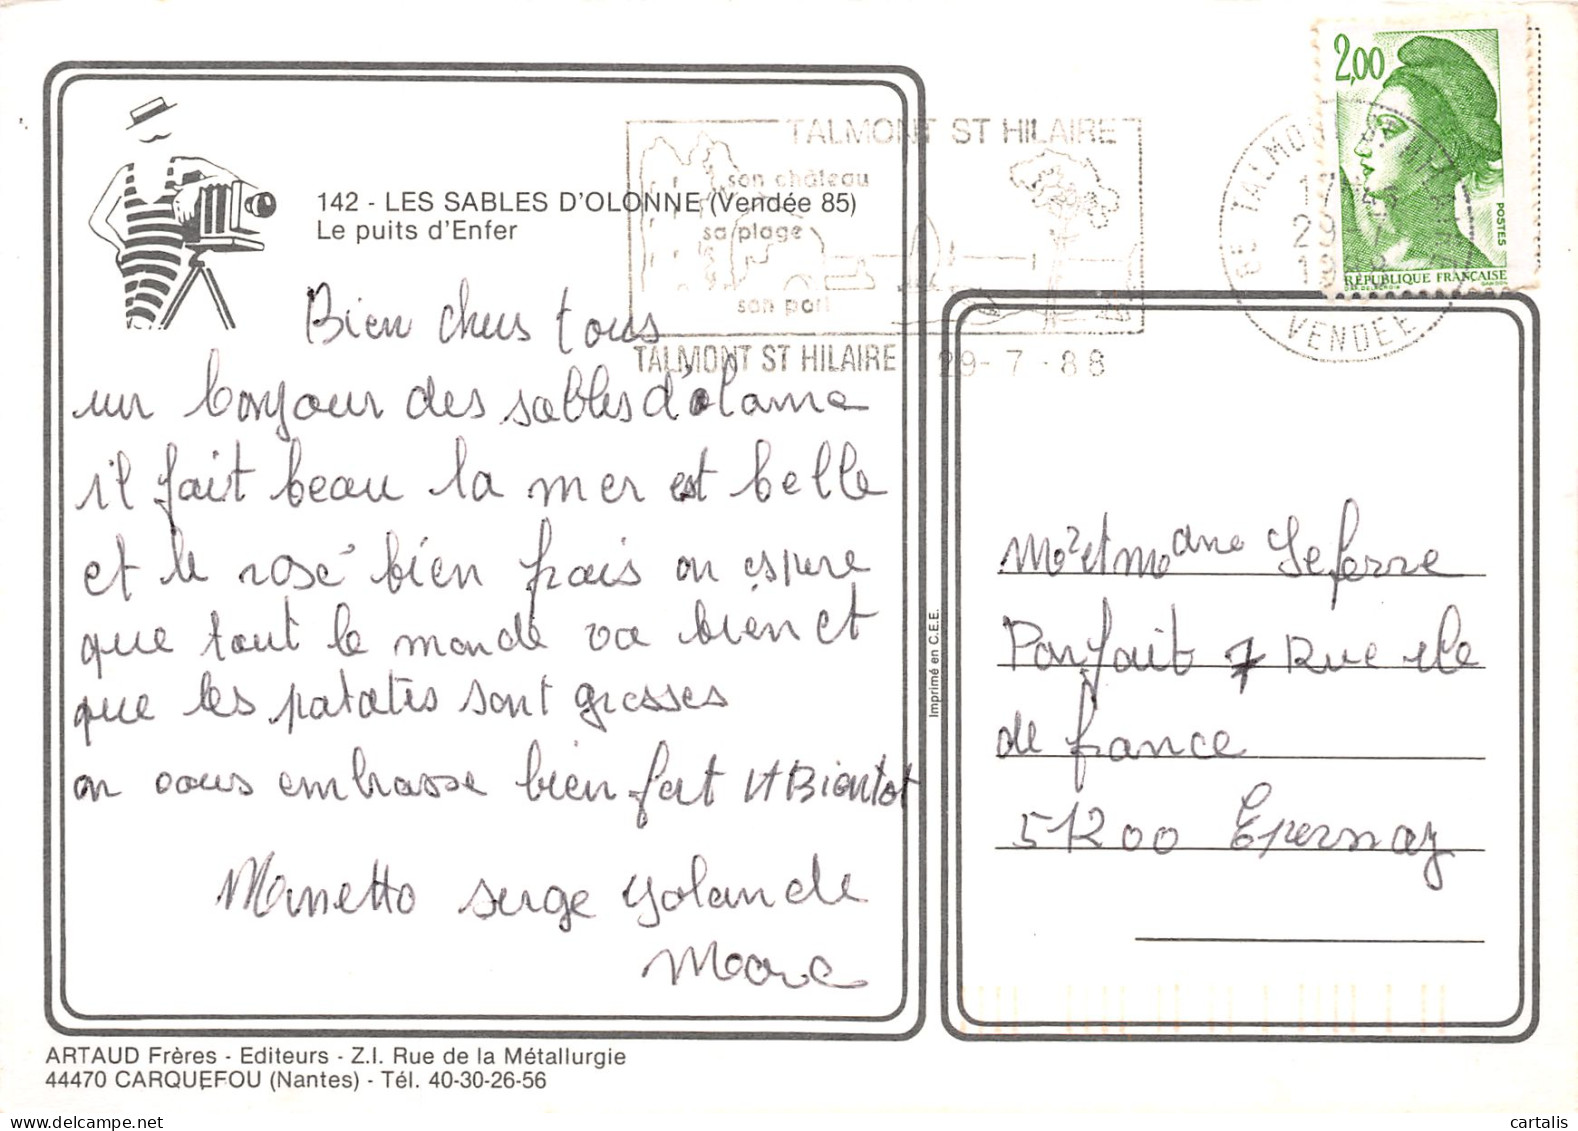 142 - LES SABLES D'OLONNE (Vendée 85)
Le puits d'Enfer
Bien chers tous
un bonjour des sables d'olonne
il fait beau la mer est belle
et le rosé bien frais on espere
que tout le monde va bien et
que les patates sont grosses
on vous embrasse bien fort A Biontot
Manetto serge yolande
Marc
ARTAUD Frères - Editeurs - Z.I. Rue de la Métallurgie
44470 CARQUEFOU (Nantes) - Tél. 40-30-26-56
Imprimé en C.E.E.
TALMONT ST HILAIRE
son château
sa plage
son port
TALMONT ST HILAIRE 29-7-88
85 TALMONT ST HILAIRE
29-7
VENDÉE
2,00
POSTES
RÉPUBLIQUE FRANÇAISE
Mr et madame Leferre
Parfait 7 Rue ile
de france
51200 Epernay
cartalis